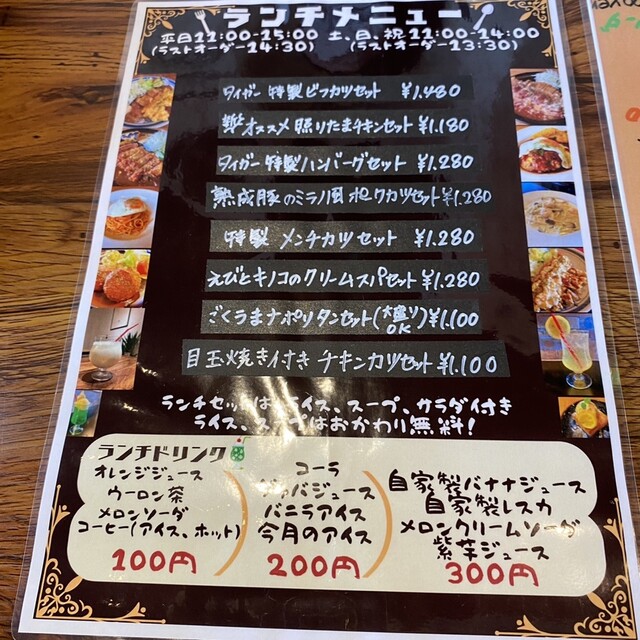 ランチメニュー
平日11:00-15:00 土、日、祝11:00-14:00
(ラストオーダー14:30) (ラストオーダー13:30)
タイガー 特製ビフカツセット ¥1.480
オススメ 照りたまチキンセット ¥1.180
タイガー特製ハンバーグセット ¥1.280
熟成豚のミラノ風ポークカツセット¥1.280
特製 メンチカツセット ¥1.280
えびとキノコのクリームスパセット ¥1.280
ごくうまナポリタンセット(大盛りOK)¥1.100
目玉焼き付き チキンカツセット¥1.100
ランチセットは、ライス、スープ、サラダ付き
ライス、スープはおかわり無料!
ランチドリンク
オレンジジュース
ウーロン茶
メロンソーダ
コーヒー(アイス、ホット)
100円
コーラ
グァバジュース
バニラアイス
今月のアイス
200円
自家製バナナジュース
自家製レスカ
メロンクリームソーダ
紫芋ジュース
300円